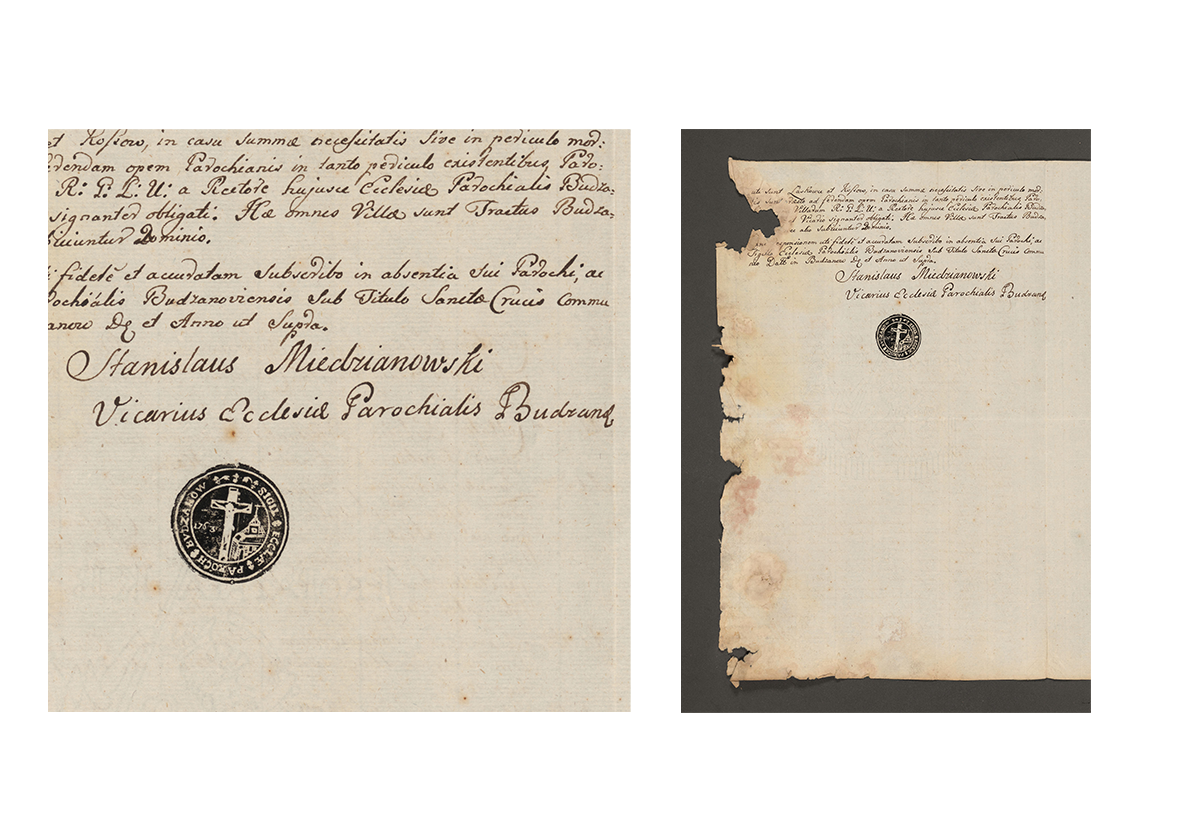 et Rosiow, in casu Summæ necesitatis Sive in periculo mor:
ferendam opem Parochianis in tanto periculo existentibus, Paro:
R: G: L: U: a Rectore hujusce Ecclesiæ Parochialis Budza:
signanter obligati: Hæ omnes Villæ sunt Tractus Budza:
Dominio.
fidelē et accuratam Subscribo in absentia Sui Parochi, ac
Parochialis Budzanoviensis Sub Titulo Sanctæ Crucis Commu
et Anno ut Supra.
Stanislaus Miedzianowski
Vicarius Ecclesiæ Parochialis Budzanq
SIGIL ECCLÆ PAROCH BVDZANOW
1753
et Rosiow, in casu Summæ necesitatis Sive in periculo mor:
ad ferendam opem Parochianis in tanto periculo existentibus, Paro:
R: G: L: U: a Rectore hujusce Ecclesiæ Parochialis Budza:
et Vicario signanter obligati: Hæ omnes Villæ sunt Tractus Budza:
Dominio.
uti fidelē et accuratam Subscribo in absentia Sui Parochi, ac
Sigillo Ecclesiæ Parochialis Budzanoviensis Sub Titulo Sanctæ Crucis Commu
in Budzanow et Anno ut Supra.
Stanislaus Miedzianowski
Vicarius Ecclesiæ Parochialis Budzanq